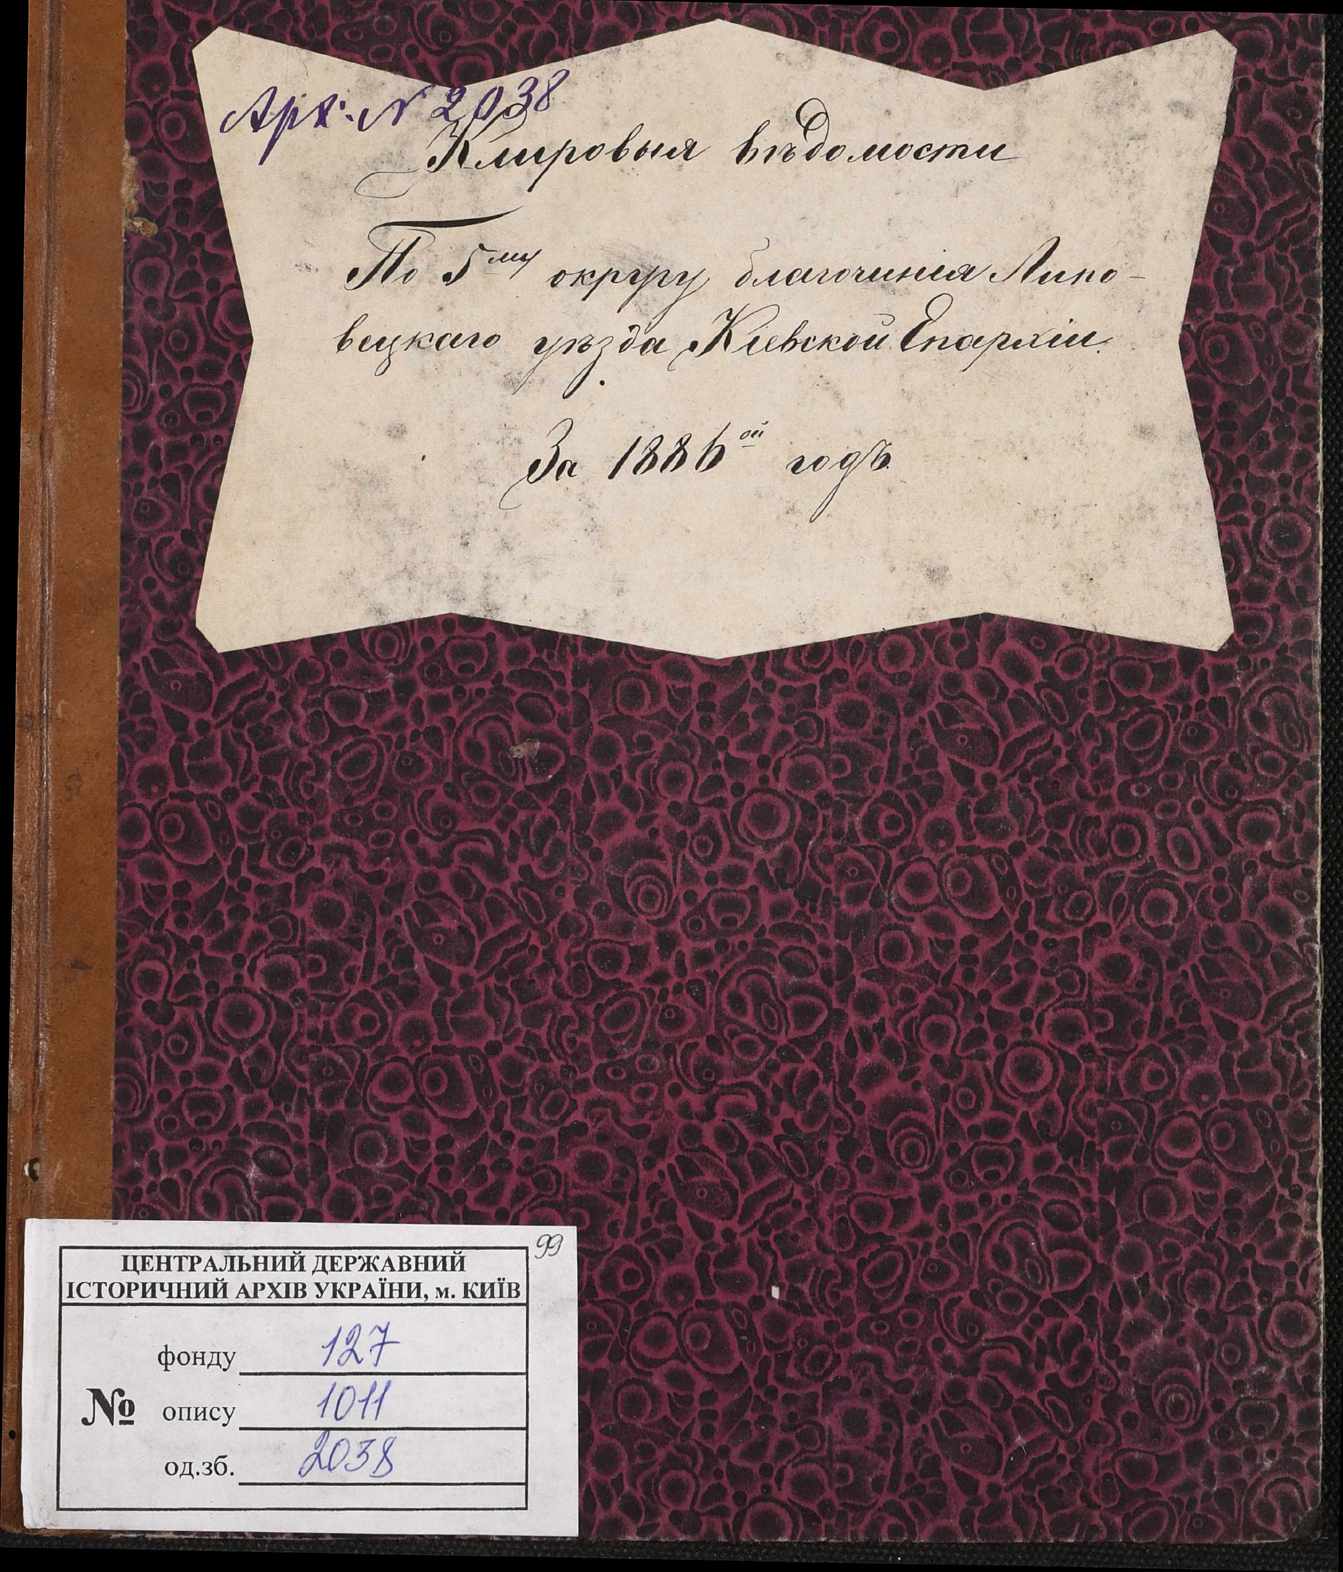 Арх. № 2038
Клировыя вѣдомости
По 5му округу благочинія Липо-
вецкаго уѣзда Кіевской Епархіи.
За 1886ой годъ
99
ЦЕНТРАЛЬНИЙ ДЕРЖАВНИЙ
ІСТОРИЧНИЙ АРХІВ УКРАЇНИ, м. КИЇВ
фонду 127
№ опису 1011
од.зб. 2038